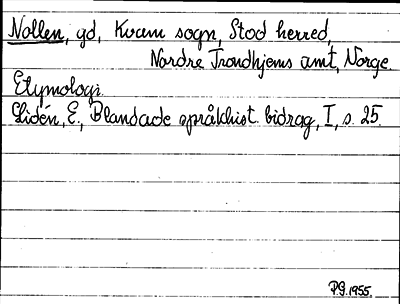 Nollen, gd, Kvam sogn, Stod herred,
Nordre Trondhjems amt, Norge.
Etymologi.
Lidén, E., Blandade språkhist. bidrag, I, s. 25.
P.G. 1955.